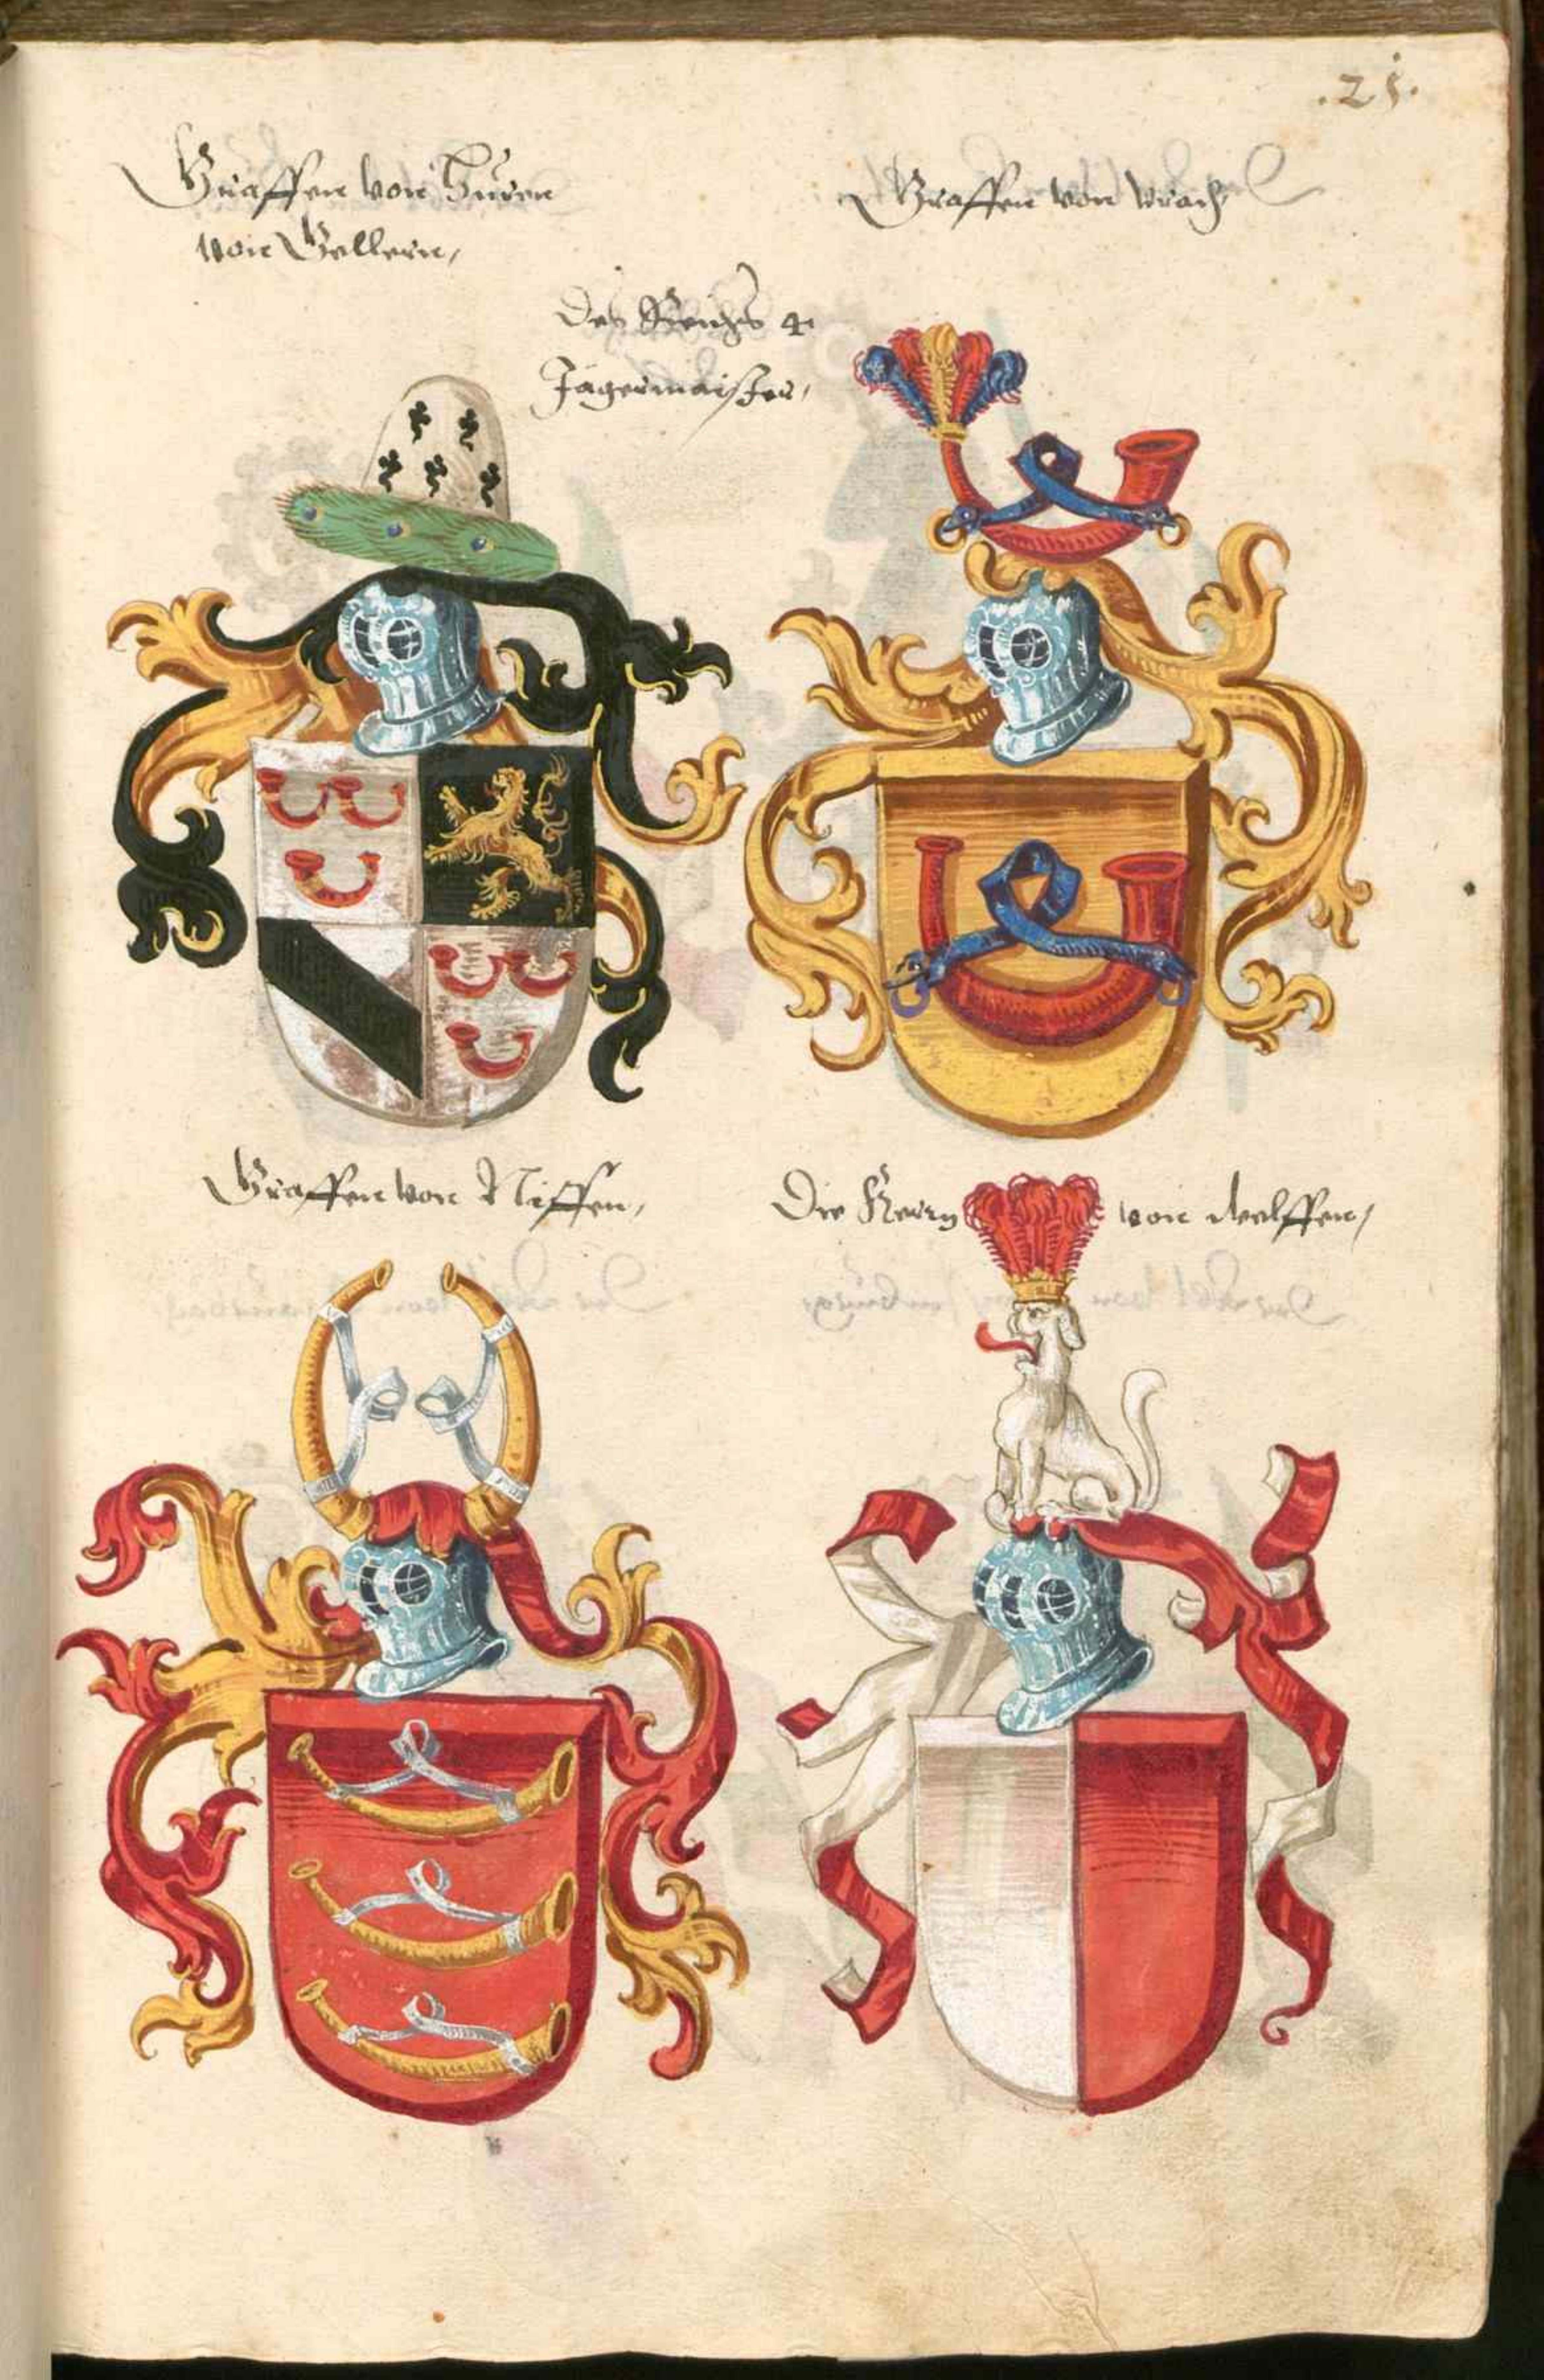 .21.
Graffen von Huren
von Gellern,
Graffen von Vrach,
Des Reichs 4
Jägermaister,
Graffen von Niffen,
Die Herrn von Welffen,